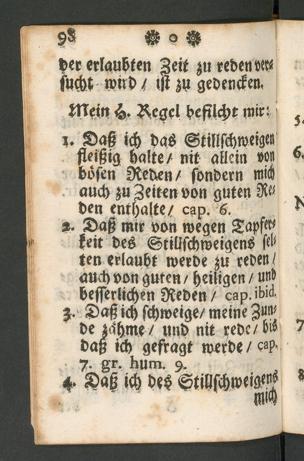 98 ❁ o ❁
der erlaubten Zeit zu reden ver-
sucht wird / ist zu gedencken.
Mein H. Regel befilcht mir:
1. Daß ich das Stillschweigen
fleißig halte / nit allein von
bösen Reden / sondern mich
auch zu Zeiten von guten Re-
den enthalte / cap. 6.
2. Daß mir von wegen Tapfer-
keit des Stillschweigens sel-
ten erlaubt werde zu reden /
auch von guten / heiligen / und
besserlichen Reden / cap. ibid.
3. Daß ich schweige / meine Zun-
de zähme / und nit rede / bis
daß ich gefragt werde / cap.
7. gr. hum. 9.
4. Daß ich des Stillschweigens
mich
5.
6.
N
7
8